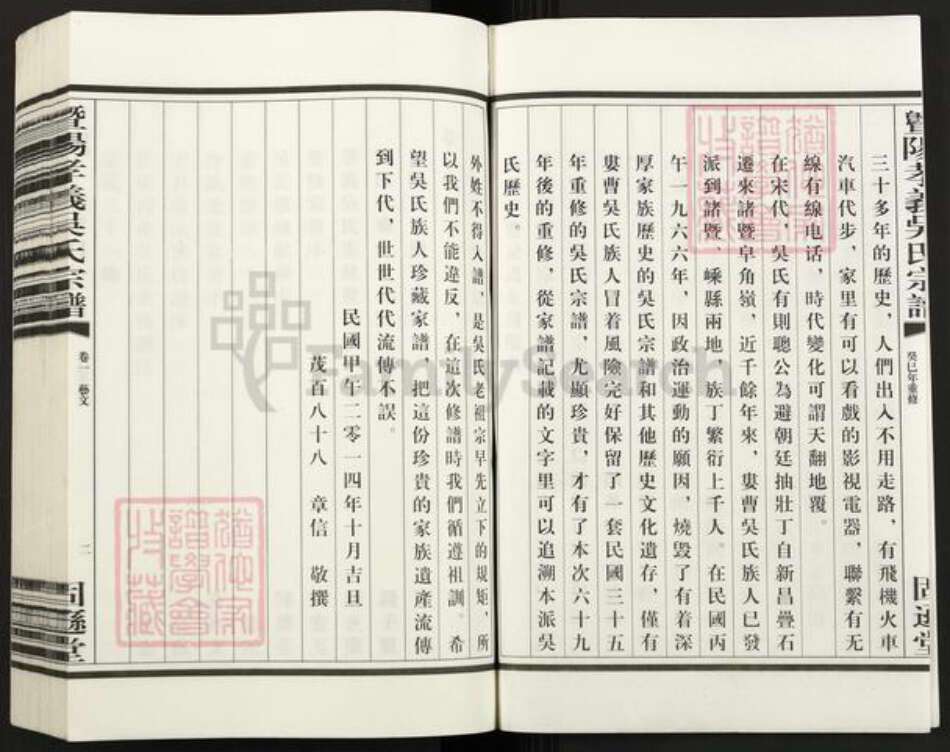 暨陽孝義吳氏宗譜
癸巳年重修
固遜堂
三十多年的歷史，人們出入不用走路，有飛機火車
汽車代步，家里有可以看戲的影視電器，聯繫有无
線有線电话，時代變化可謂天翻地覆。
在宋代，吳氏有則聰公為避朝廷抽壯丁自新昌疊石
遷來諸暨阜角嶺，近千餘年來，婁曹吳氏族人已發
派到諸暨，嵊縣兩地，族丁繁衍上千人。在民國丙
午一九六六年，因政治運動的願因，燒毀了有着深
厚家族歷史的吳氏宗譜和其他歷史文化遺存，僅有
婁曹吳氏族人冒着風險完好保留了一套民國三十五
年重修的吳氏宗譜，尤顯珍貴，才有了本次六十九
年後的重修，從家譜記載的文字里可以追溯本派吳
氏歷史。
外姓不得入譜，是吳氏老祖宗早先立下的規矩，所
以我們不能違反，在這次修譜時我們循遵祖訓。希
望吳氏族人珍藏家譜，把這份珍貴的家族遺產流傳
到下代，世世代代流傳不誤。
民國甲午二零一四年十月吉旦
茂百八十八 章信 敬撰
暨陽孝義吳氏宗譜
卷一 藝文
二
固遜堂
FamilySearch